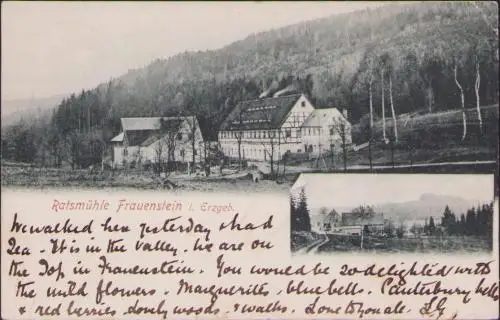 Ratsmühle Frauenstein i. Erzgeb.
We walked here yesterday & had
Tea. It is in the Valley. We are on
the Top in Frauenstein. You would be so delighted with
the wild flowers. Marguerites, bluebell. Canterbury bells
& red berries lovely woods & walks. Love to you all.